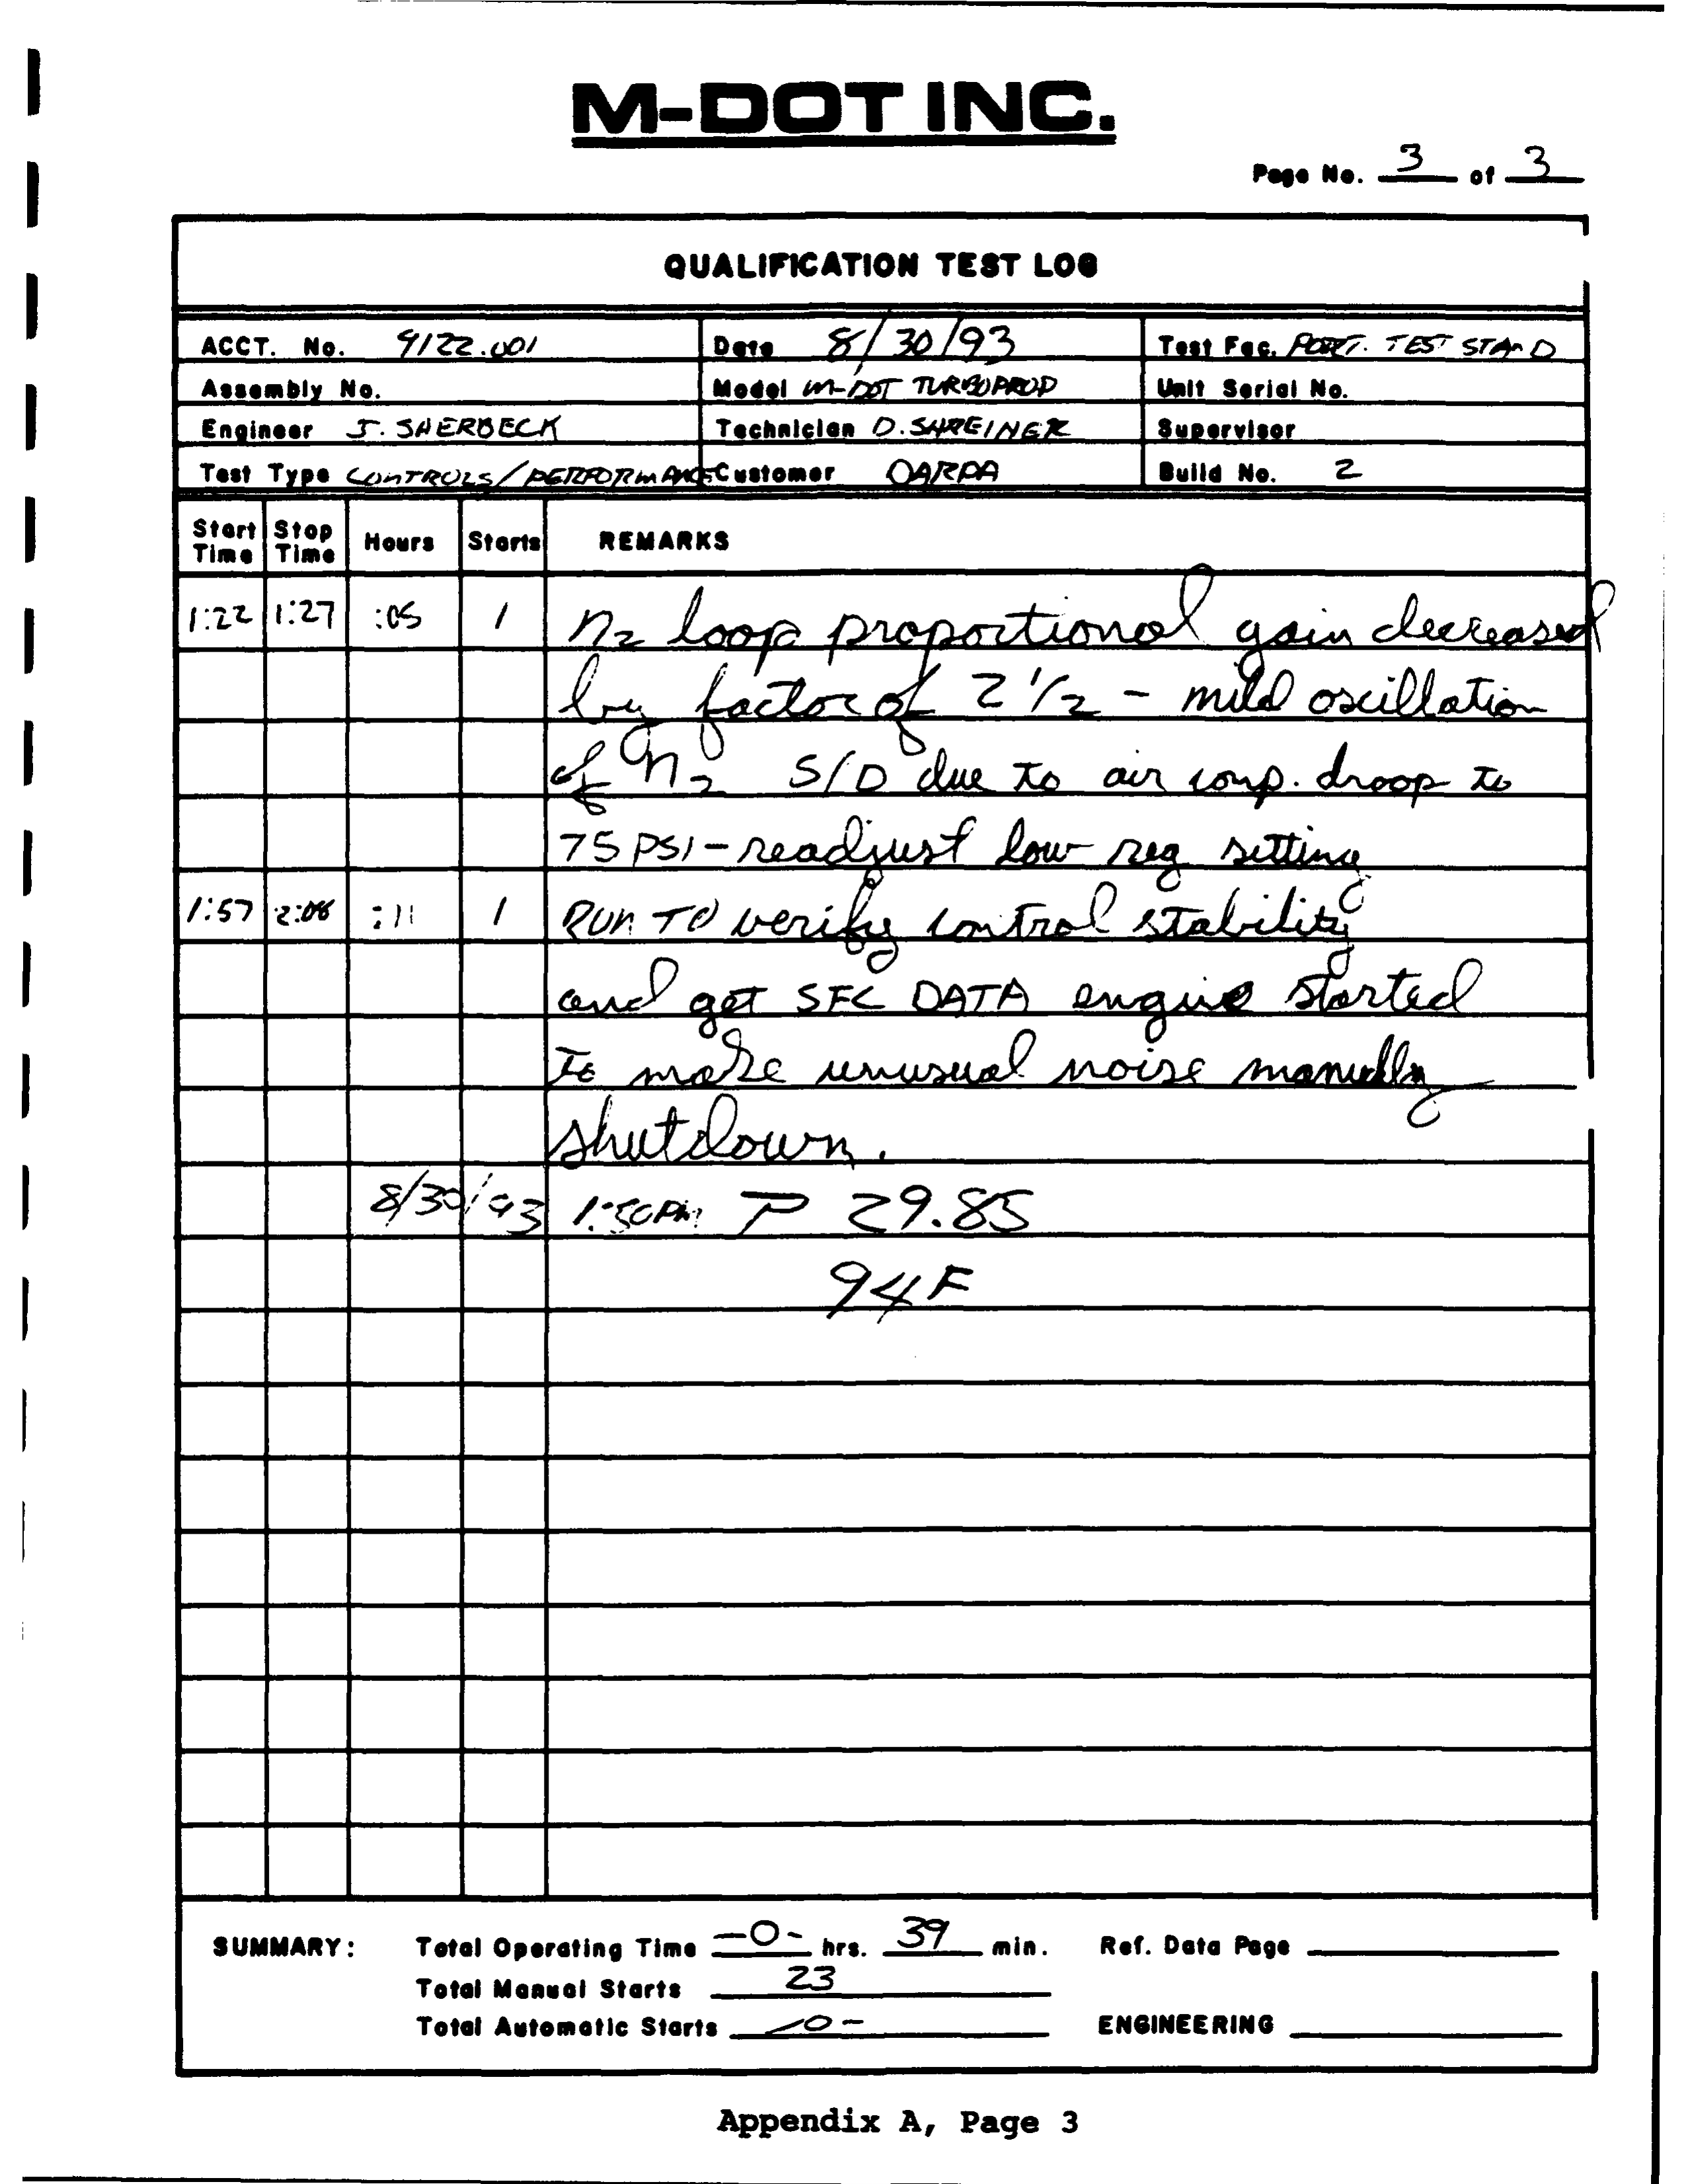 M-DOT INC.
Page No. 3 of 3
QUALIFICATION TEST LOG
ACCT. No. 9122.001 Date 8/30/93 Test Fac. PORT. TEST STAND
Assembly No. Model M-DOT TURBOPROP Unit Serial No.
Engineer J. SHERBECK Technician D. SHREINER Supervisor
Test Type CONTROLS/PERFORMANCE Customer DARPA Build No. 2
Start Time Stop Time Hours Starts REMARKS
1:22 1:27 :05 1 n2 loop proportional gain decreased
by factor of 2 1/2 - mild oscillation
of n2 S/D due to air comp. droop to
75 PSI - readjust low reg setting
1:57 2:08 :11 1 RUN TO verify control stability
and get SFC DATA engine started
to make unusual noise manually
shutdown.
8/30/93 1:50PM P 29.85
94 F
SUMMARY: Total Operating Time -0- hrs. 39 min. Ref. Data Page
Total Manual Starts 23
Total Automatic Starts -0- ENGINEERING
Appendix A, Page 3